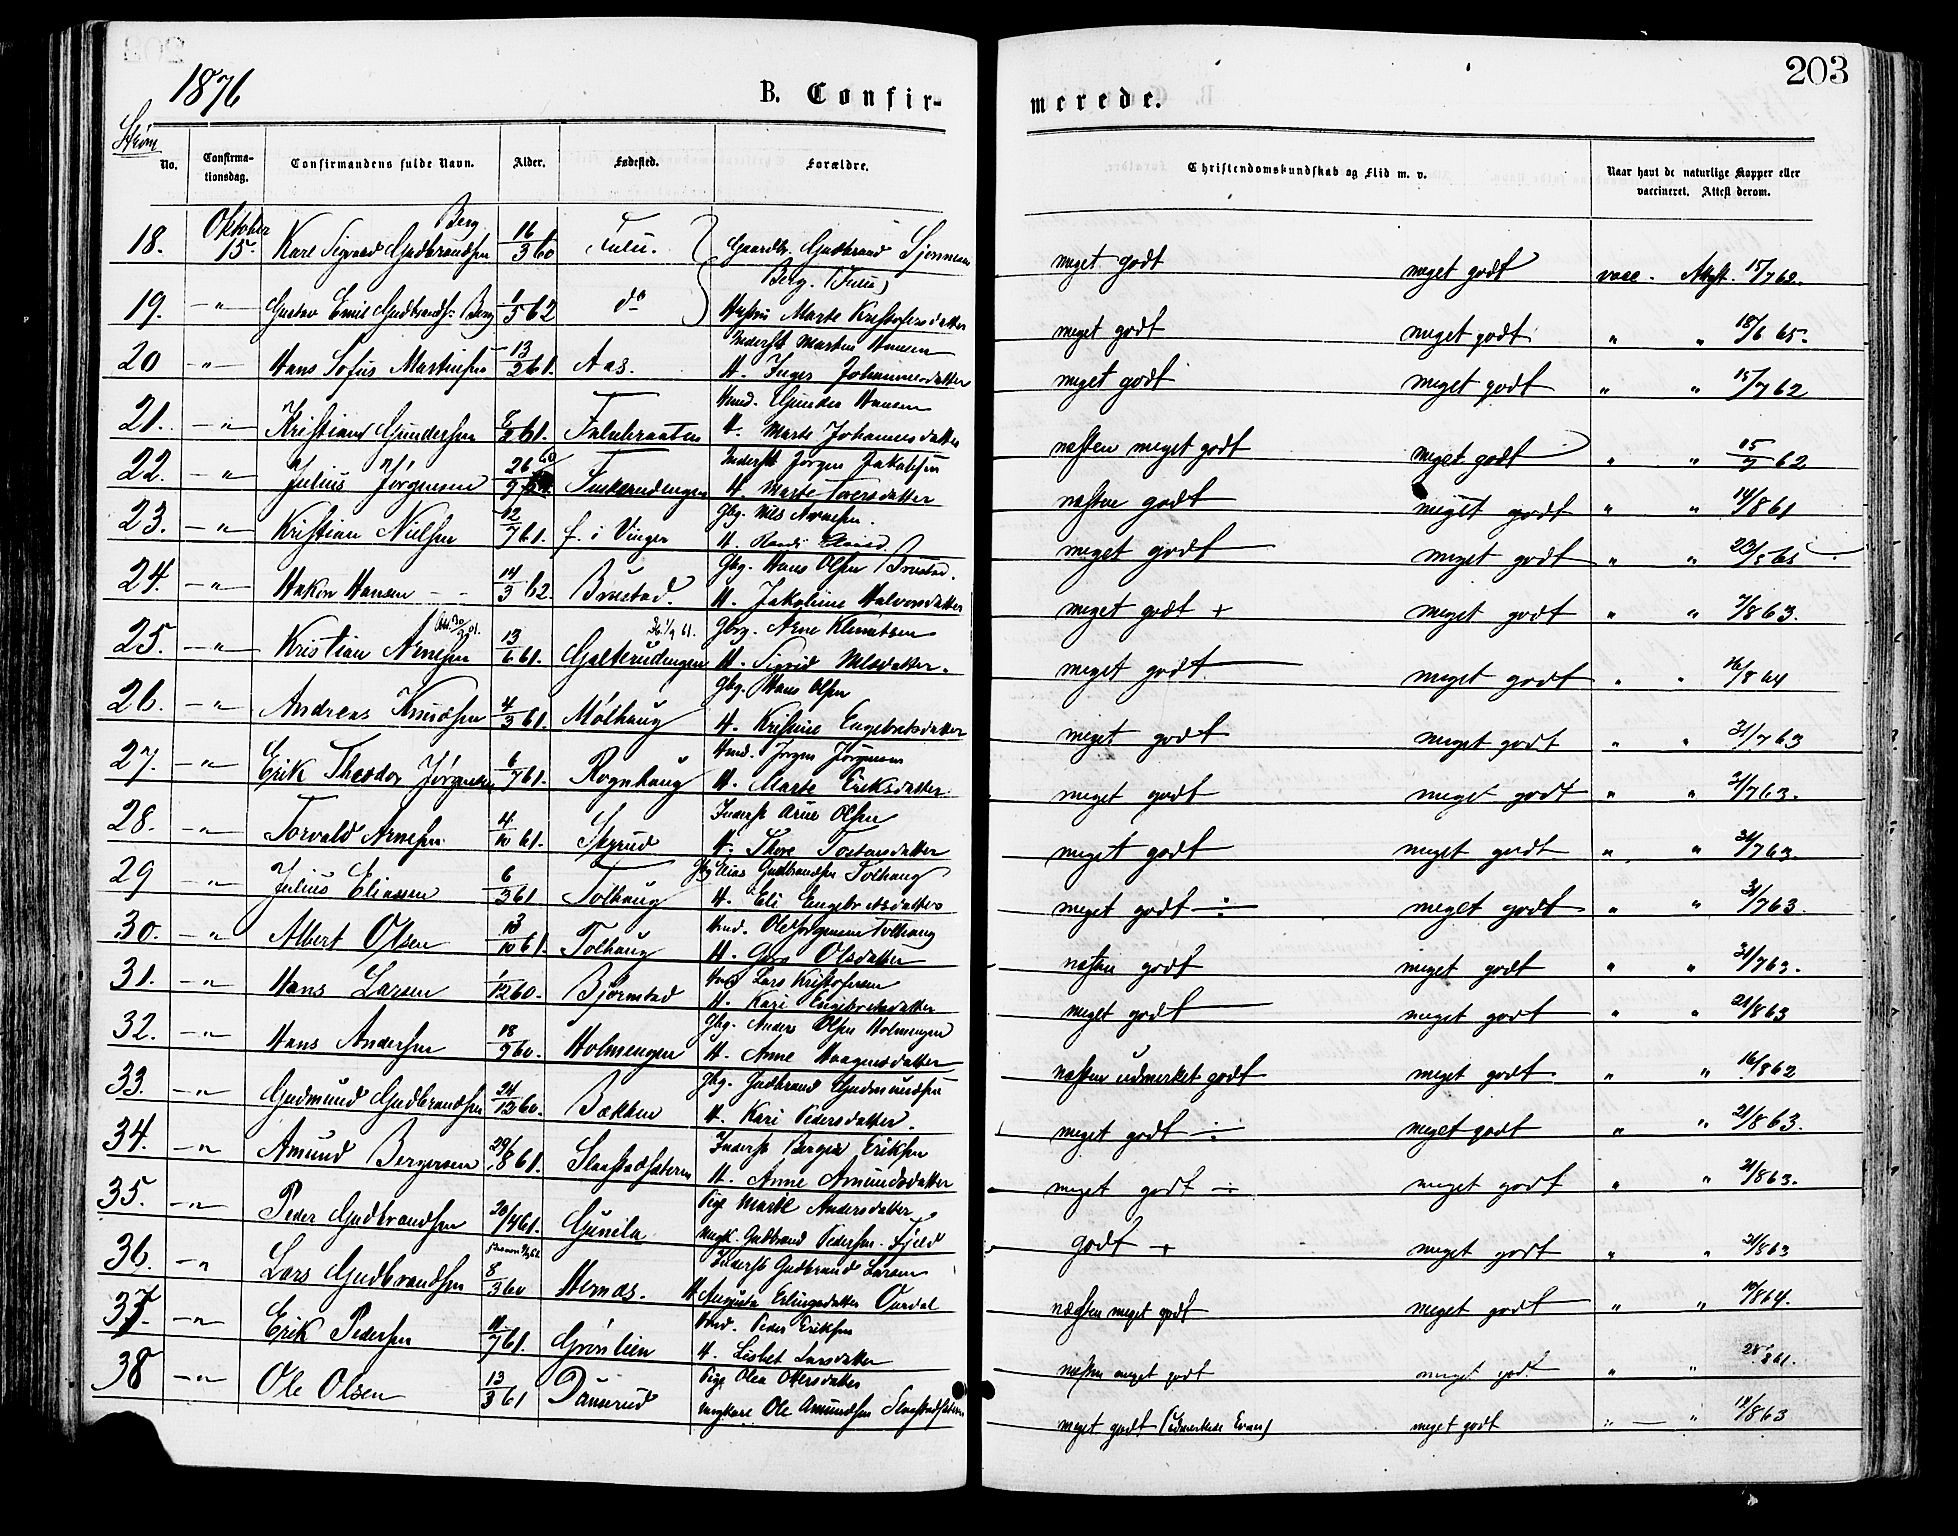 1876
B. Confirmerede.
203
Strøm
No.
Confirmationsdag.
Confirmandens fulde Navn.
Alder.
Fødested.
Forældre.
Christendomskundskab og Flid m. v.
Naar havt de naturlige Kopper eller vaccineret. Attest derom.
18. Oktober 15. Karl Sigvard Gudbrandsen Berg 16/3 60 Fulu. Gaardbr. Gudbrand meget godt meget godt vacc. Attest. 15/7 62.
Berg. (Fulu)
19. -"- Gustav Emil Gudbrands. Berg 1/5 62 do Hustru Marte Kristofersdatter meget godt meget godt " " 18/6 65.
Inderst Martin Hansen
20 -"- Hans Sofus Martinsen 13/2 61. Aas. H. Inger Johannesdatter meget godt meget godt " " 15/7 62
Hmd. Gunder Hansen
21. -"- Kristian Gundersen 61. H. Marte Johannesdatter næsten meget godt meget godt " " 15/7 62
Inderst Jørgen Jakobsen
22. -"- Julius Jørgensen 26/9 60 H. Marte næsten godt meget godt " " 14/8 61
Gbg. Nils Arnesen.
23. -"- Kristian Nielsen 12/7 61. f. i Vinger H. meget godt meget godt " " 23/5 65
Gbg. Hans Olsen Brustad.
24. -"- Hakon Hansen 14/3 62. Brustad. H. Jakobine Halvorsdatter meget godt + meget godt " " 7/8 63.
Gbg. Arne Klemetsen
25. -"- Kristian Arnesen 13/6 61. Galterudengen H. Sigrid Nilsdatter. meget godt meget godt " " 26/8 64
Gbg. Hans Olsen
26. -"- Andreas Knudsen 4/3 61. Mølhaug H. Kristine Engebretsdatter meget godt meget godt " " 31/7 63
Hmd. Jørgen Jørgensen
27. -"- Erik Theodor Jørgensen 6/7 61. Rognhaug H. Marte Eriksdatter meget godt meget godt " " 31/7 63.
Inderst Arne Olsen
28. -"- Torvald Arnesen 4/10 61. Skyrud H. Thore Tostensdatter meget godt meget godt " " 31/7 63.
Gbg Elias Gudbrandsen Tolhaug
29 -"- Julius Eliassen 6/3 61 Tolhaug H. Eli Engebretsdatter meget godt ÷ meget godt " " 31/7 63.
Hmd. Ole Jørgensen Tolhaug
30. -"- Albert Olsen 13/10 61. Tolhaug H. Gura Olsdatter næsten godt meget godt " " 31/7 63.
Hmd Lars Kristofersen
31. -"- Hans Larsen 1/12 60. Bjørnstad H. Kari Engebretsdatter meget godt meget godt " " 21/8 63
Gbg. Anders Olsen Holmengen
32. -"- Hans Andersen 18/9 60. Holmengen H. Anne Haagensdatter næsten udmerket godt meget godt " " 16/8 62
Gbg. Gudbrand Gudmundsen
33. -"- Gudmund Gudbrandsen 24/12 60. Bækken H. Kari Pedersdatter. meget godt ÷ meget godt " " 21/8 63.
Inderst Berger Eriksen
34. -"- Amund Bergersen 29/8 61. Slaastadsæteren H. Anne Amundsdatter meget godt ÷ meget godt " " 21/8 63.
Pige Marte Andersdatter
35. -"- Peder Gudbrandsen 20/4 61. Gunila Ungk. Gudbrand Pedersen Fjeld godt + meget godt " " 21/8 63
Inderst Gudbrand Larsen
36. -"- Lars Gudbrandsen 8/3 60 Hernæs. H Augusta Erlingsdatter Ourdal næsten meget godt meget godt " " 19/8 64.
Hmd. Peder Eriksen
37. -"- Erik Pedersen 11/7 61. Grønlien H. Lisbet Larsdatter næsten meget godt meget godt " " 28/8 61.
Pige Olea Olersdatter
38 -"- Ole Olsen 13/3 61 Dansrud Ungkarl Ole Amundsen Slaastadsæteren meget godt (Udmerkede Evner) meget godt " " 18/8 63